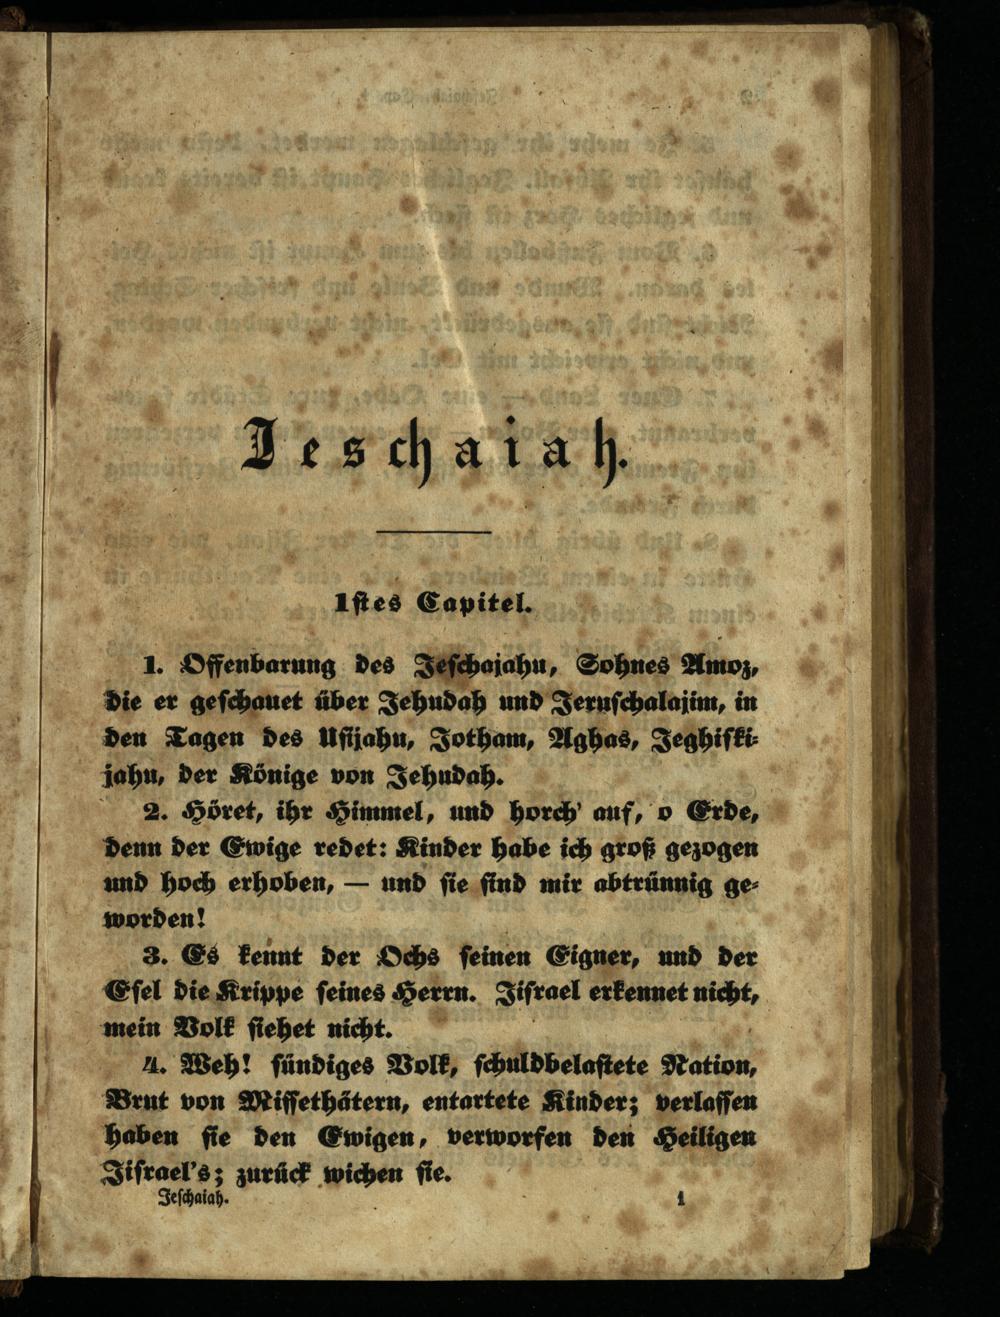 Jeschaiah.
1stes Capitel.
1. Offenbarung des Jeschajahu, Sohnes Amoz,
die er geschauet über Jehudah und Jeruschalajim, in
den Tagen des Usijahu, Jotham, Aghas, Jeghiski-
jahu, der Könige von Jehudah.
2. Höret, ihr Himmel, und horch' auf, o Erde,
denn der Ewige redet: Kinder habe ich groß gezogen
und hoch erhoben, — und sie sind mir abtrünnig ge-
worden!
3. Es kennt der Ochs seinen Eigner, und der
Esel die Krippe seines Herrn. Jisrael erkennet nicht,
mein Volk siehet nicht.
4. Weh! sündiges Volk, schuldbelastete Nation,
Brut von Missethätern, entartete Kinder; verlassen
haben sie den Ewigen, verworfen den Heiligen
Jisrael's; zurück wichen sie.
Jeschaiah. 1